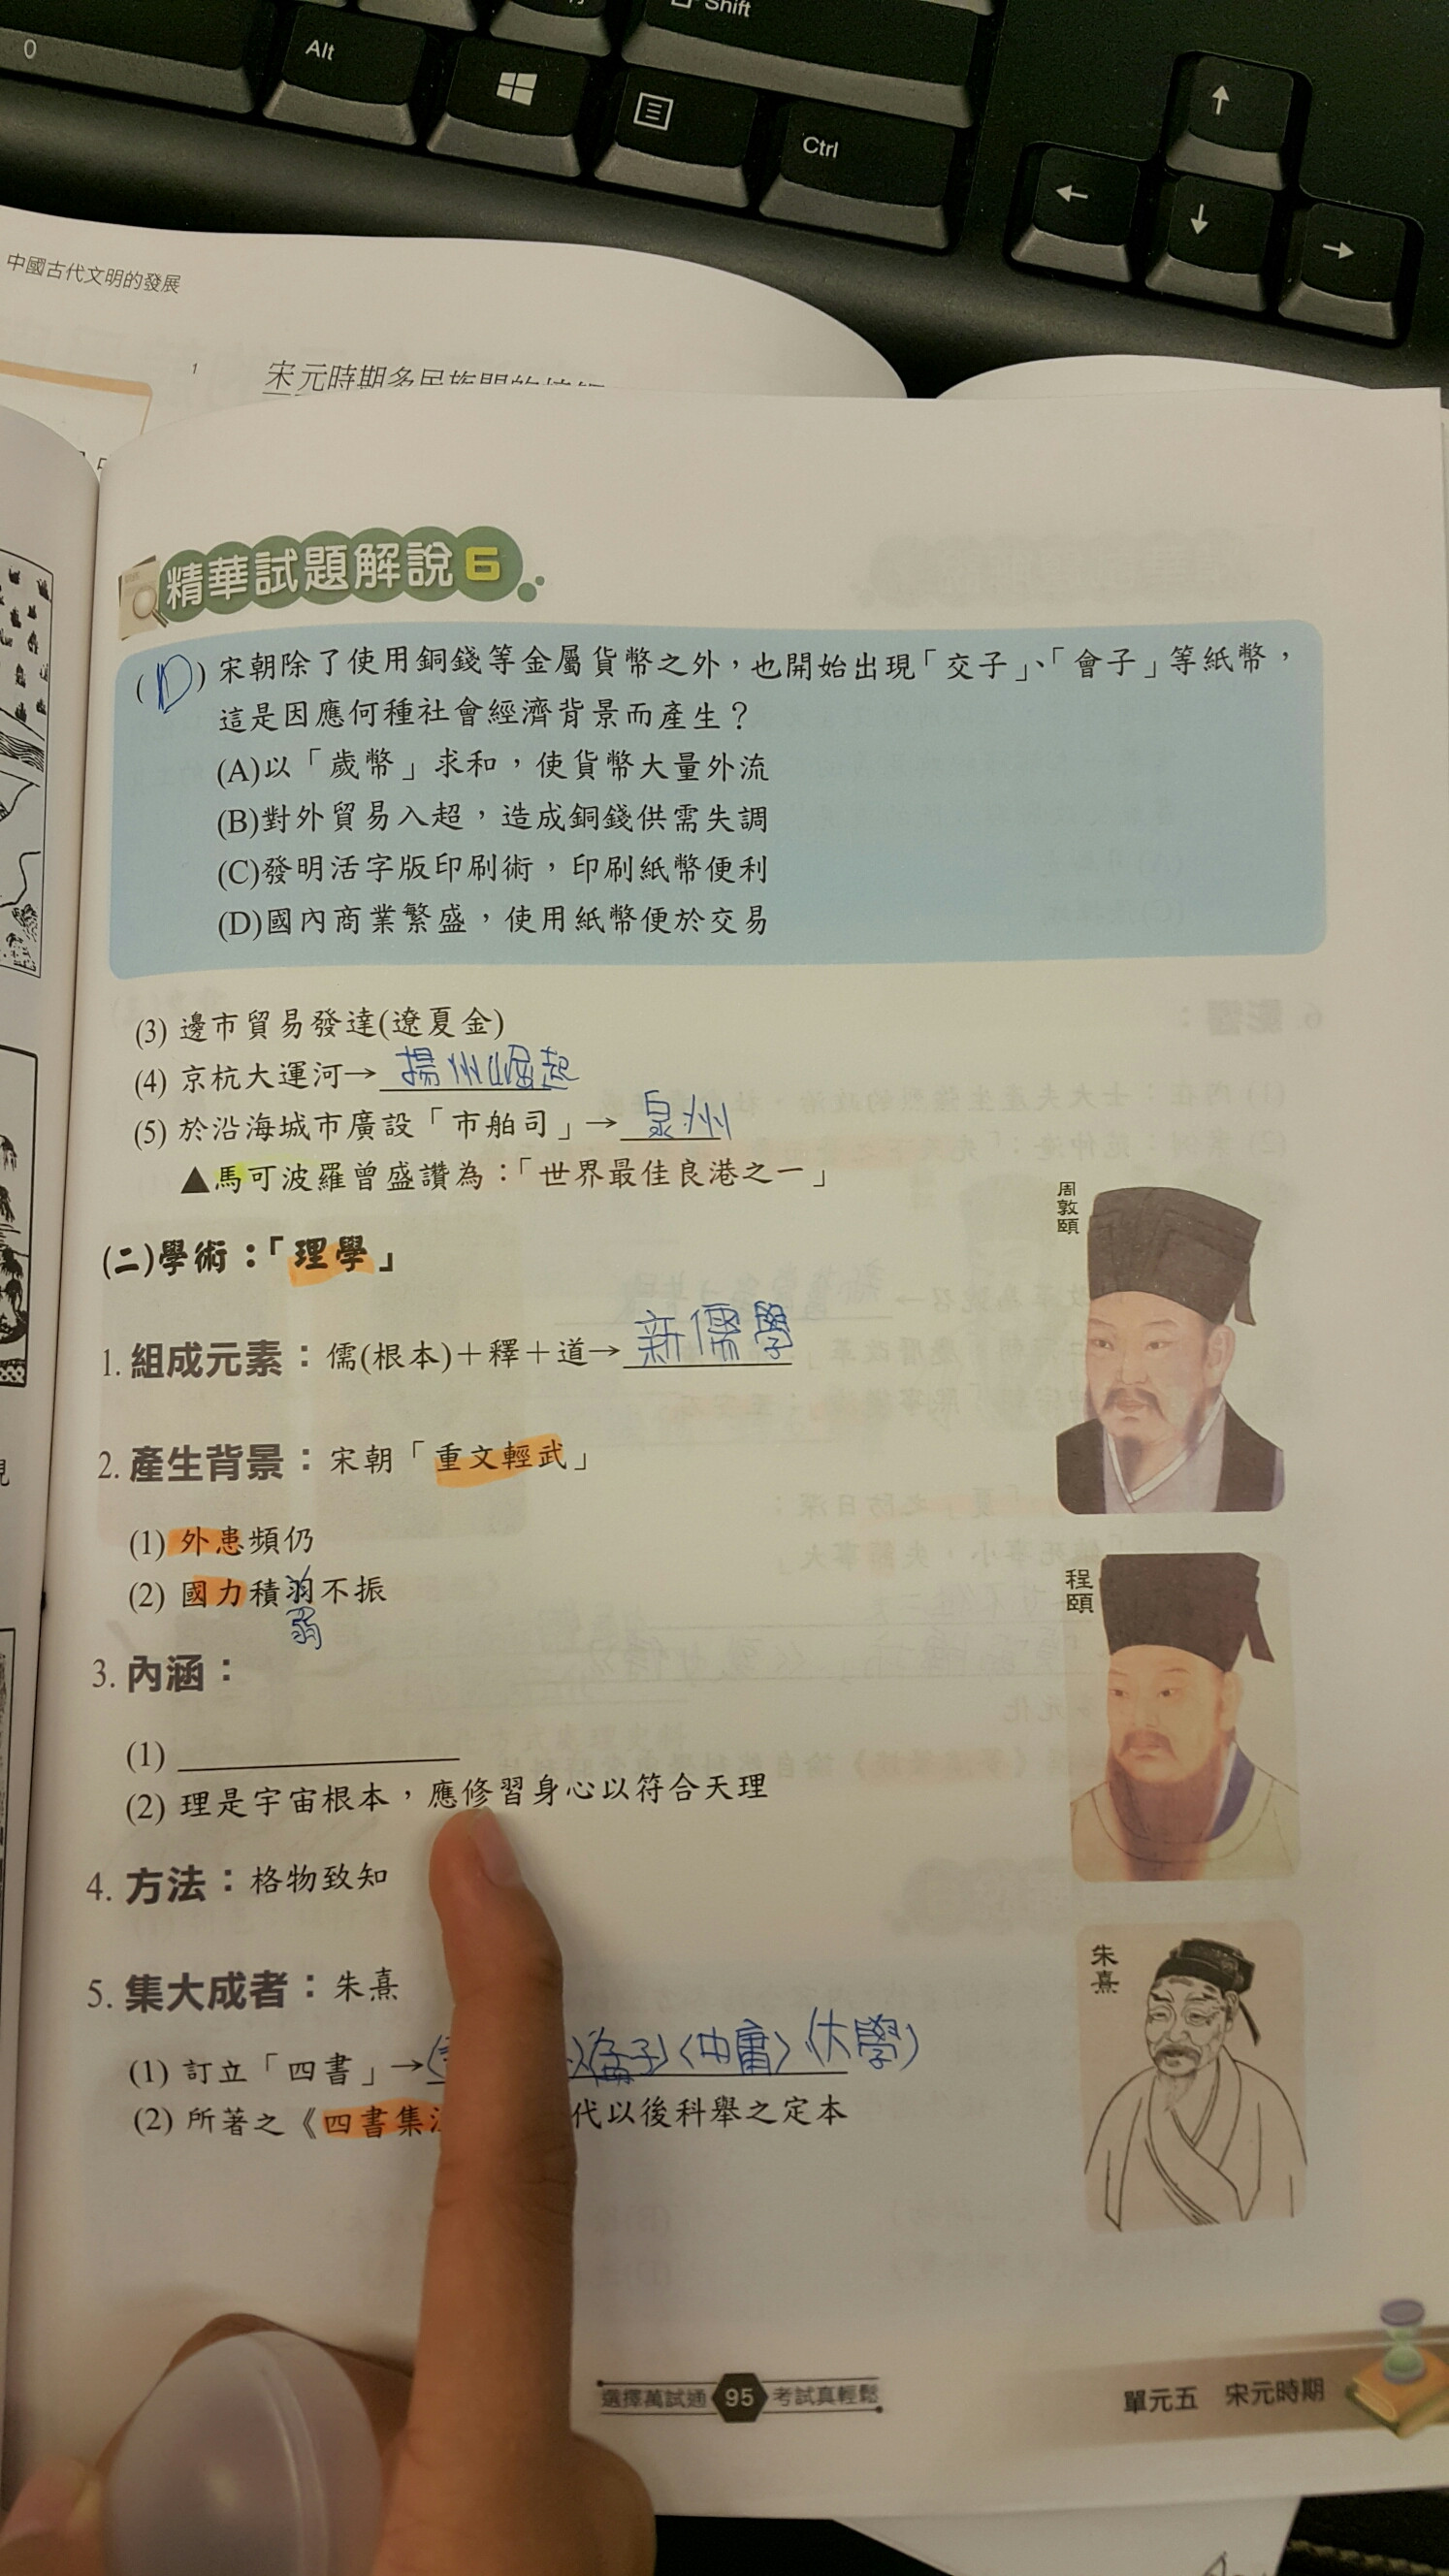 0
Alt
Shift
Ctrl
中國古代文明的發展
1
宋元時期多民族間的
精華試題解說6
(D)宋朝除了使用銅錢等金屬貨幣之外，也開始出現「交子」、「會子」等紙幣，
這是因應何種社會經濟背景而產生？
(A)以「歲幣」求和，使貨幣大量外流
(B)對外貿易入超，造成銅錢供需失調
(C)發明活字版印刷術，印刷紙幣便利
(D)國內商業繁盛，使用紙幣便於交易
(3) 邊市貿易發達(遼夏金)
(4) 京杭大運河→揚州崛起
(5) 於沿海城市廣設「市舶司」→泉州
▲馬可波羅曾盛讚為：「世界最佳良港之一」
(二)學術：「理學」
1. 組成元素：儒(根本)＋釋＋道→新儒學
2. 產生背景：宋朝「重文輕武」
(1) 外患頻仍
(2) 國力積羽不振
弱
3. 內涵：
(1)
(2) 理是宇宙根本，應修習身心以符合天理
4. 方法：格物致知
5. 集大成者：朱熹
(1) 訂立「四書」→〈孟子〉〈中庸〉〈大學〉
(2) 所著之《四書集 代以後科舉之定本
周敦頤
程頤
朱熹
選擇萬試通 95 考試真輕鬆
單元五 宋元時期